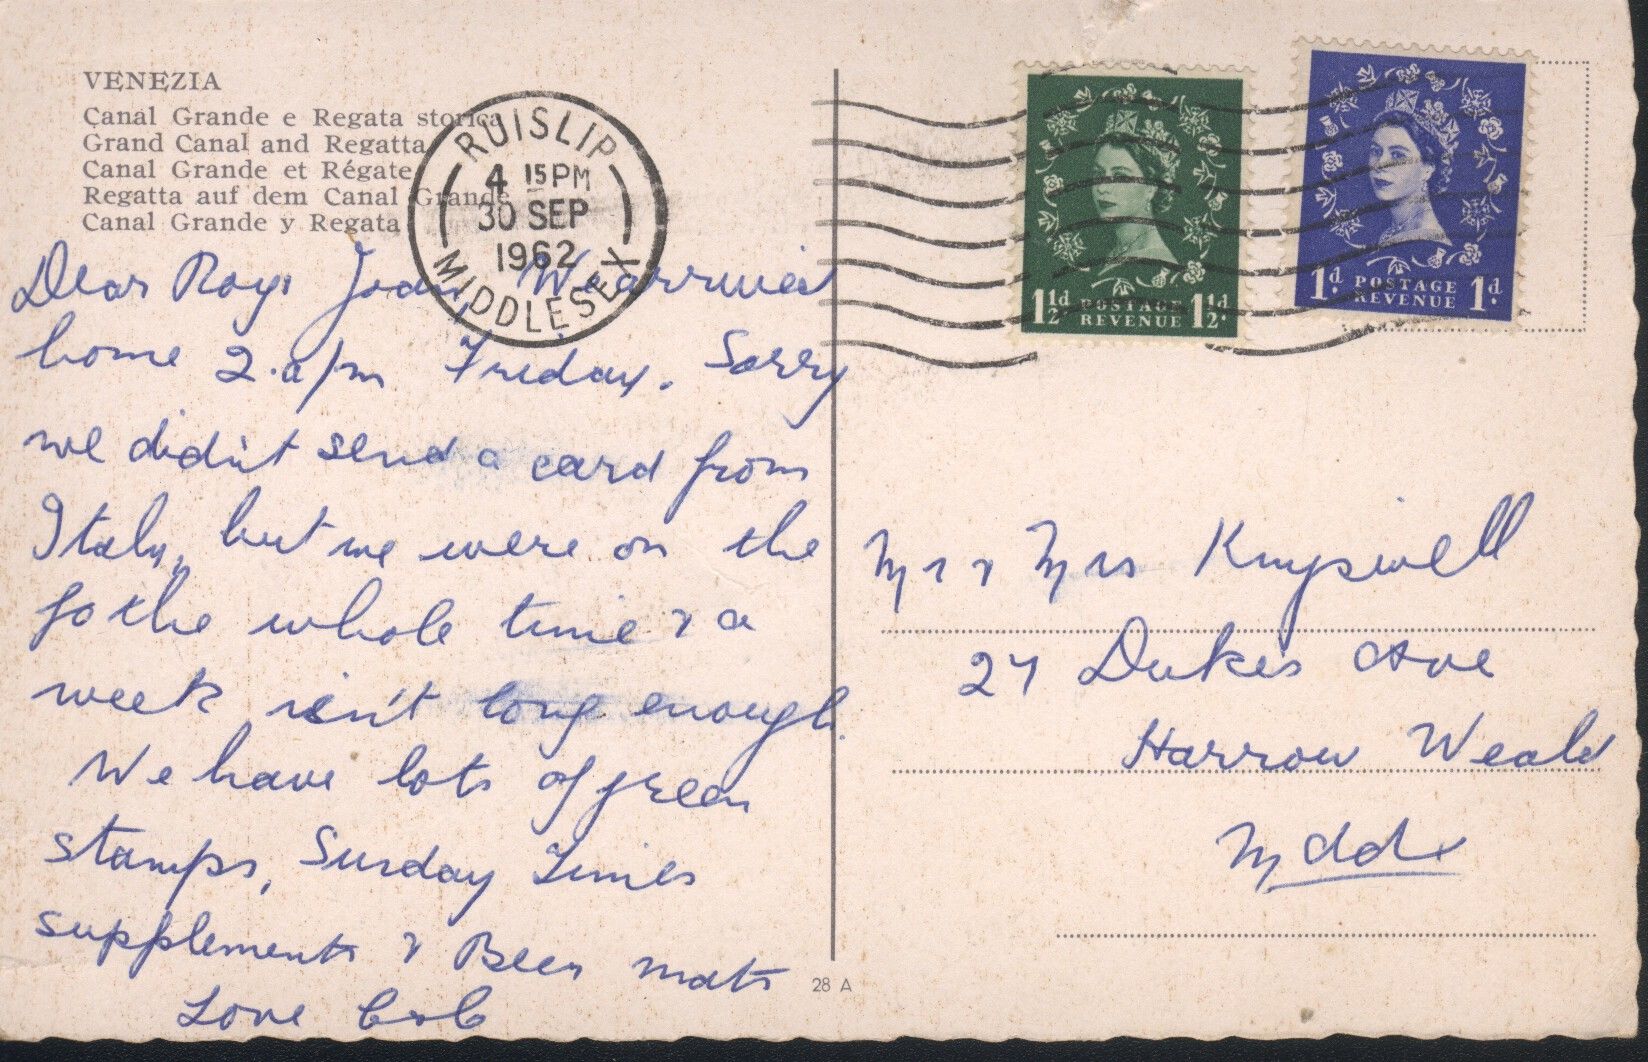 VENEZIA
Canal Grande e Regata storica
Grand Canal and Regatta
Canal Grande et Régate
Regatta auf dem Canal Grande
Canal Grande y Regata
RUISLIP
4 15 PM
30 SEP
1962
MIDDLESEX
1½d POSTAGE 1½d.
REVENUE
1d. POSTAGE 1d.
REVENUE
Dear Roy, Joan, We arrived
home 2. a/m Friday. Sorry
we didn't send a card from
Italy, but we were on the
go the whole time & a
week isn't long enough.
We have lots of green
stamps, Sunday Times
supplements & Beer mats
Love
Mr & Mrs
27 Dukes Ave
Harrow Weald
Mddx
28 A